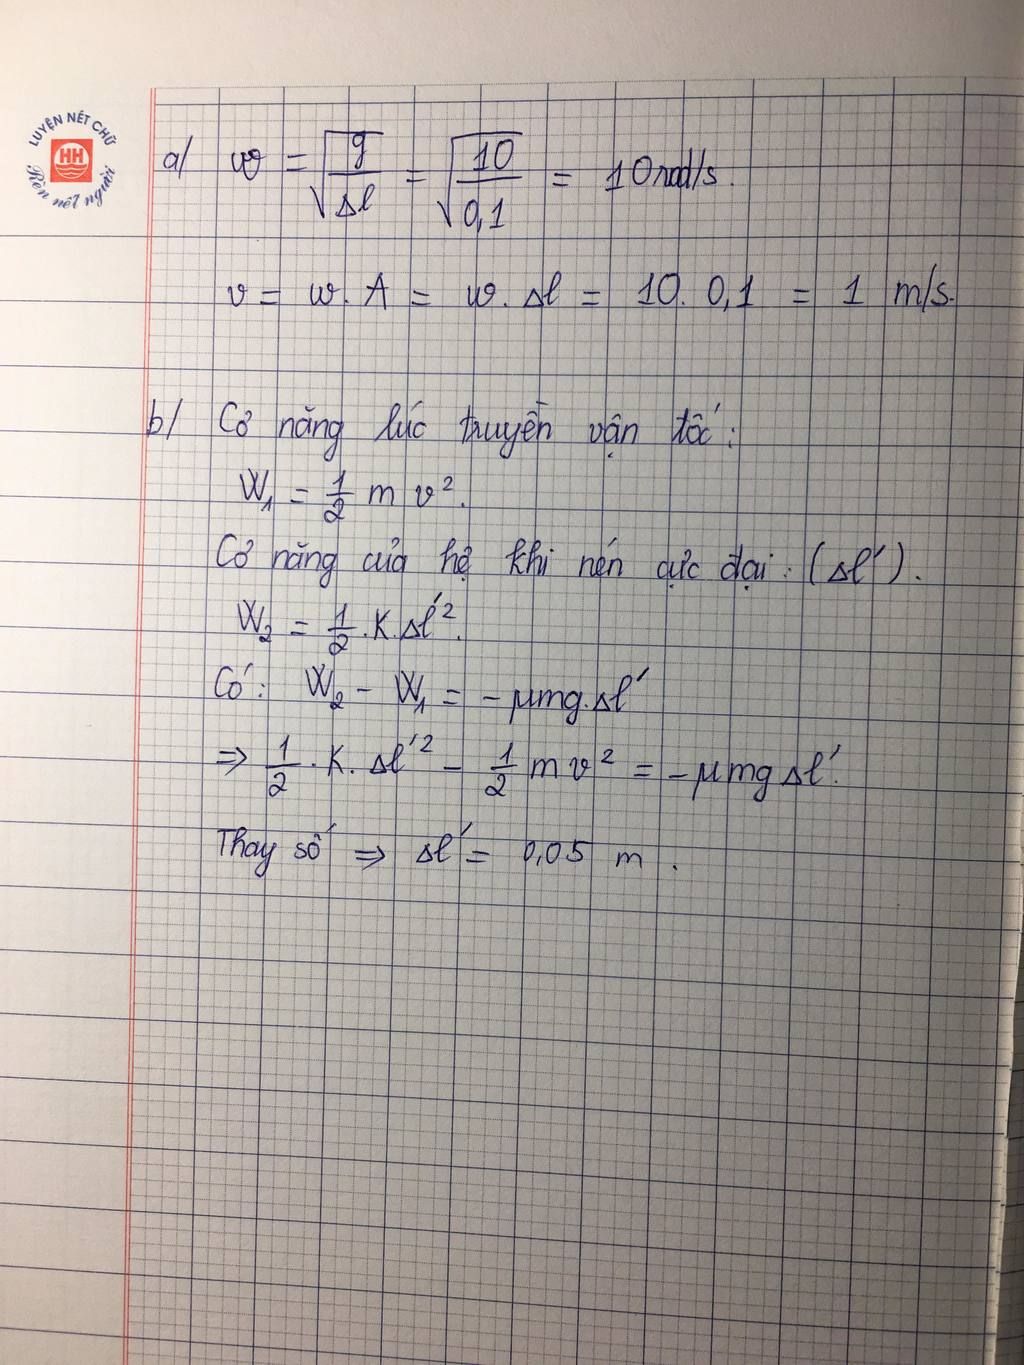 LUYỆN NÉT CHỮ
HH
Rèn nết người
a/ ω = √(g/Δl) = √(10/0,1) = 10 rad/s.
v = ω. A = ω. Δl = 10. 0,1 = 1 m/s.
b/ Cơ năng lúc truyền vận tốc:
W₁ = 1/2 m v².
Cơ năng của hệ khi nén cực đại: (Δl').
W₂ = 1/2 .K.Δl'².
Có: W₂ - W₁ = -μmg.Δl'
⇒ 1/2 . K. Δl'² - 1/2 m v² = -μmgΔl'.
Thay số ⇒ Δl' = 0,05 m .